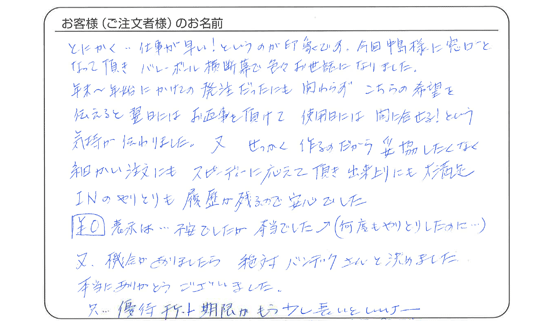 お客様（ご注文者様）のお名前
とにかく…仕事が早い！というのが印象です。今回中島様に窓口と
なって頂き バレーボール横断幕で色々お世話になりました。
年末〜年始にかけての発注だったにも関わらず こちらの希望を
伝えると翌日にはお返事を頂けて 使用日には間に合せる！という
気持が伝わりました。又 せっかく作るのだから妥協したくなく
細かい注文にも スピーディーに応えて頂き出来上りにも大満足
INのやりとりも履歴が残るので安心でした
¥0 表示は…不安でしたが 本当でした (何度もやりとりしたのに…)
又、機会がありましたら 絶対 バンテックさんと決めました
本当にありがとうございました。
只…優待チケット期限がもう少し長いとしいナー